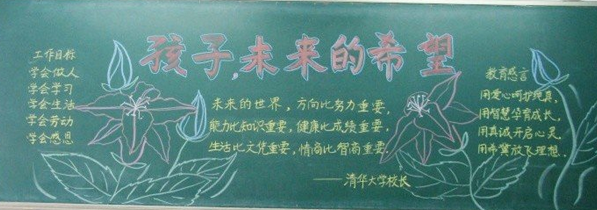 孩子,未来的希望
工作目标
学会做人
学会学习
学会生活
学会劳动
学会感恩
未来的世界，方向比努力重要，
能力比知识重要，健康比成绩重要，
生活比文凭重要，情商比智商重要。
——清华大学校长
教育感言
用爱心呵护纯真，
用智慧孕育成长，
用真诚开启心灵，
用希冀放飞理想。